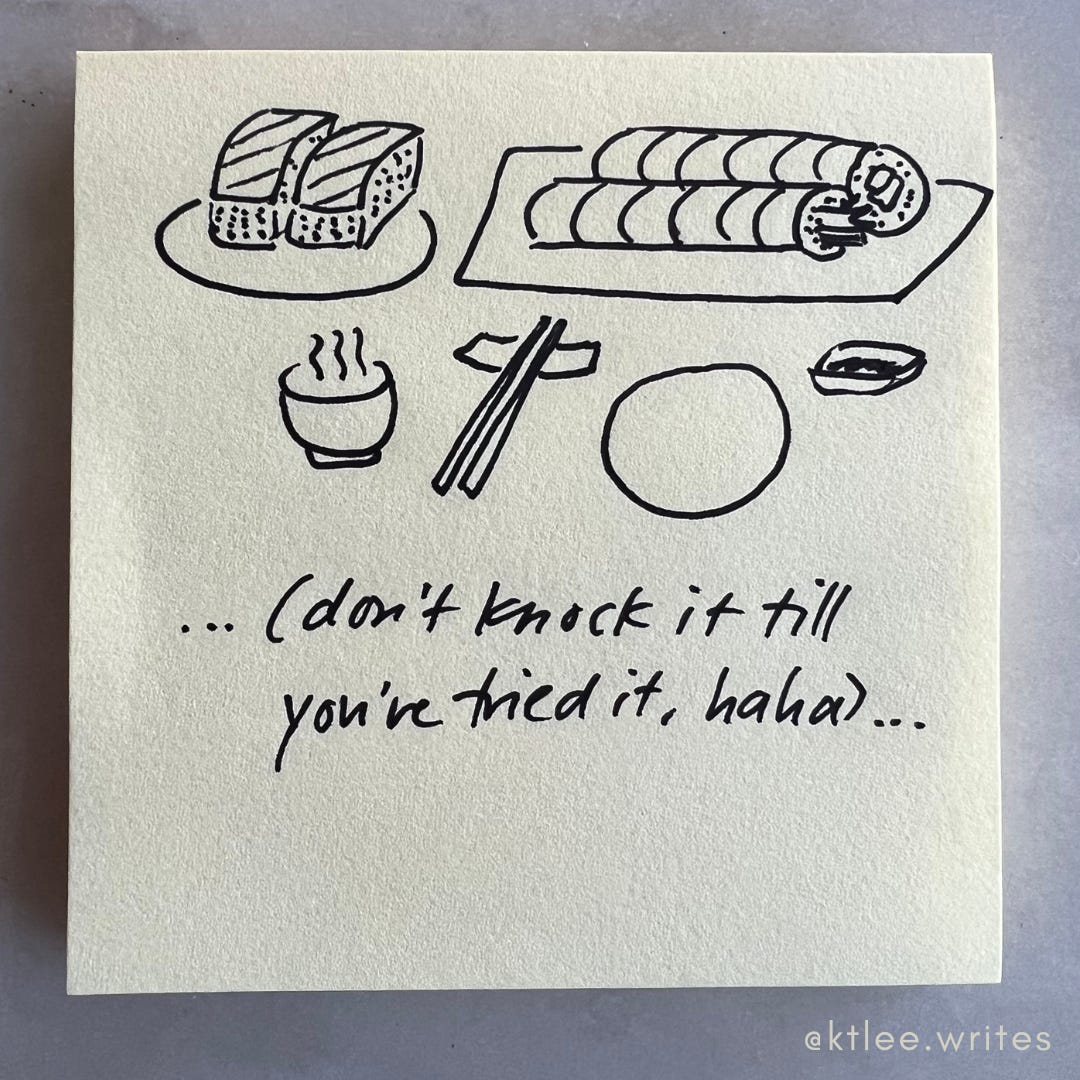 ... (don't knock it till
you're tried it, haha)...
@ktlee.writes